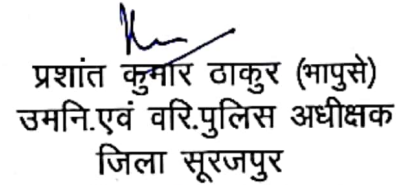 प्रशांत कुमार ठाकुर (भापुसे)
उमनि.एवं वरि.पुलिस अधीक्षक
जिला सूरजपुर